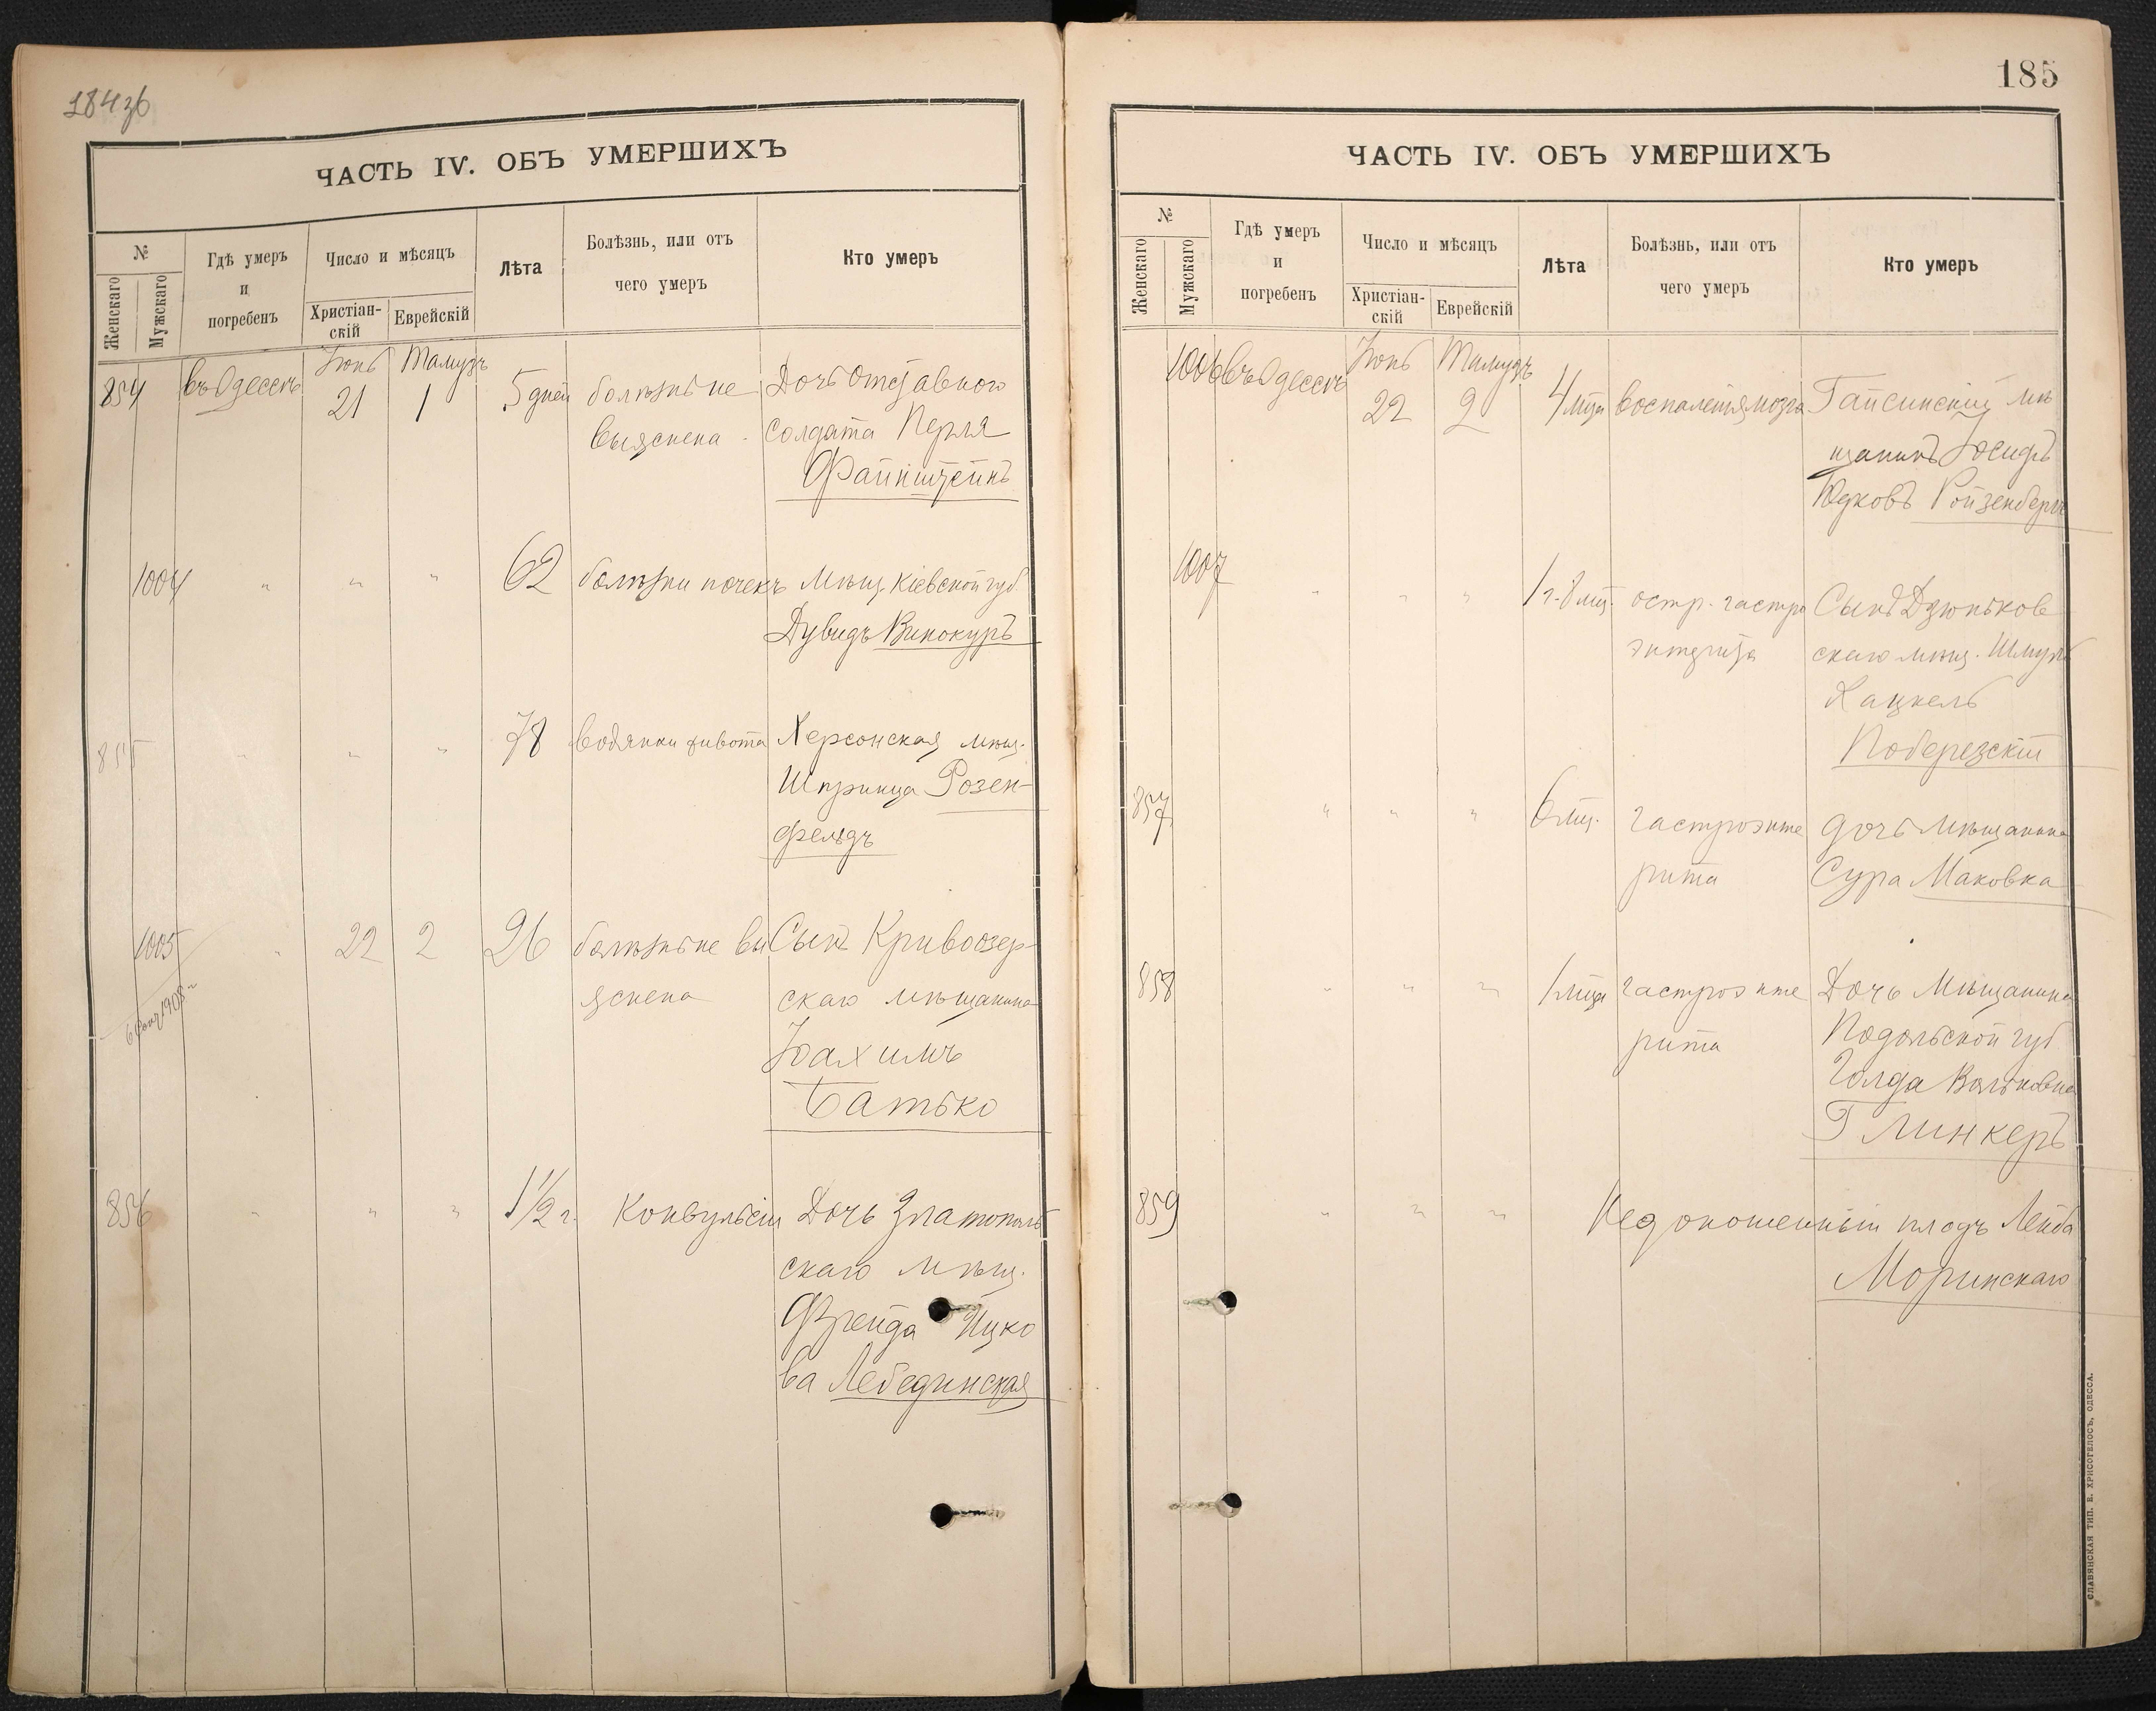 184 зб
ЧАСТЬ IV. ОБЪ УМЕРШИХЪ
№
Женскаго
Мужскаго
Гдѣ умеръ
и
погребенъ
Число и мѣсяцъ
Христіан-
скій
Еврейскій
Лѣта
Болѣзнь, или отъ
чего умеръ
Кто умеръ
Іюнь Тамузъ
854 въ Одессѣ 21 1 5 дней болѣзнь не Дочь отставного
выяснена - солдата Перля
Файнштейнъ
1004 " " " 62 болѣзни почекъ Мѣщ. Кіевской губ.
Дувидъ Винокуръ
855 " " " 78 водянки живота Херсонская мѣщ.
Шпринца Розен-
фельдъ
1005 " 22 2 26 болѣзнь не вы Сынъ Кривоозер-
яснена скаго мѣщанина
Іоахимъ
Батько
856 " " " 1 1/2 г. Конвульсіи Дочь Златополь
скаго мѣщ.
Фрейда Ицко
ва Лебединская
185
ЧАСТЬ IV. ОБЪ УМЕРШИХЪ
№
Женскаго
Мужскаго
Гдѣ умеръ
и
погребенъ
Число и мѣсяцъ
Христіан-
скій
Еврейскій
Лѣта
Болѣзнь, или отъ
чего умеръ
Кто умеръ
Іюнь Тамузъ
1006 въ Одессѣ 22 2 4 мца воспаленія мозга Гайсинскій мѣ
щанинъ Іосифъ
Юдковъ Ройзенбергъ
1007 " " " 1 г. 8 мц. остр. гастро Сынъ Дзюньков
энтерита скаго мѣщ. Шмуль
Хацкель
Поберезскій
857 " " " 6 мц. гастроэнте дочь мѣщанина
рита Сура Маковка
858 " " " 1 мца гастроэнте Дочь Мѣщанина
рита Подольской губ.
Голда Вольковна
Глинкеръ
859 " " " Недоношенный плодъ Лейба
Моринскаго
СЛАВЯНСКАЯ ТИП. Е. ХРИСОГЕЛОСЪ, ОДЕССА.